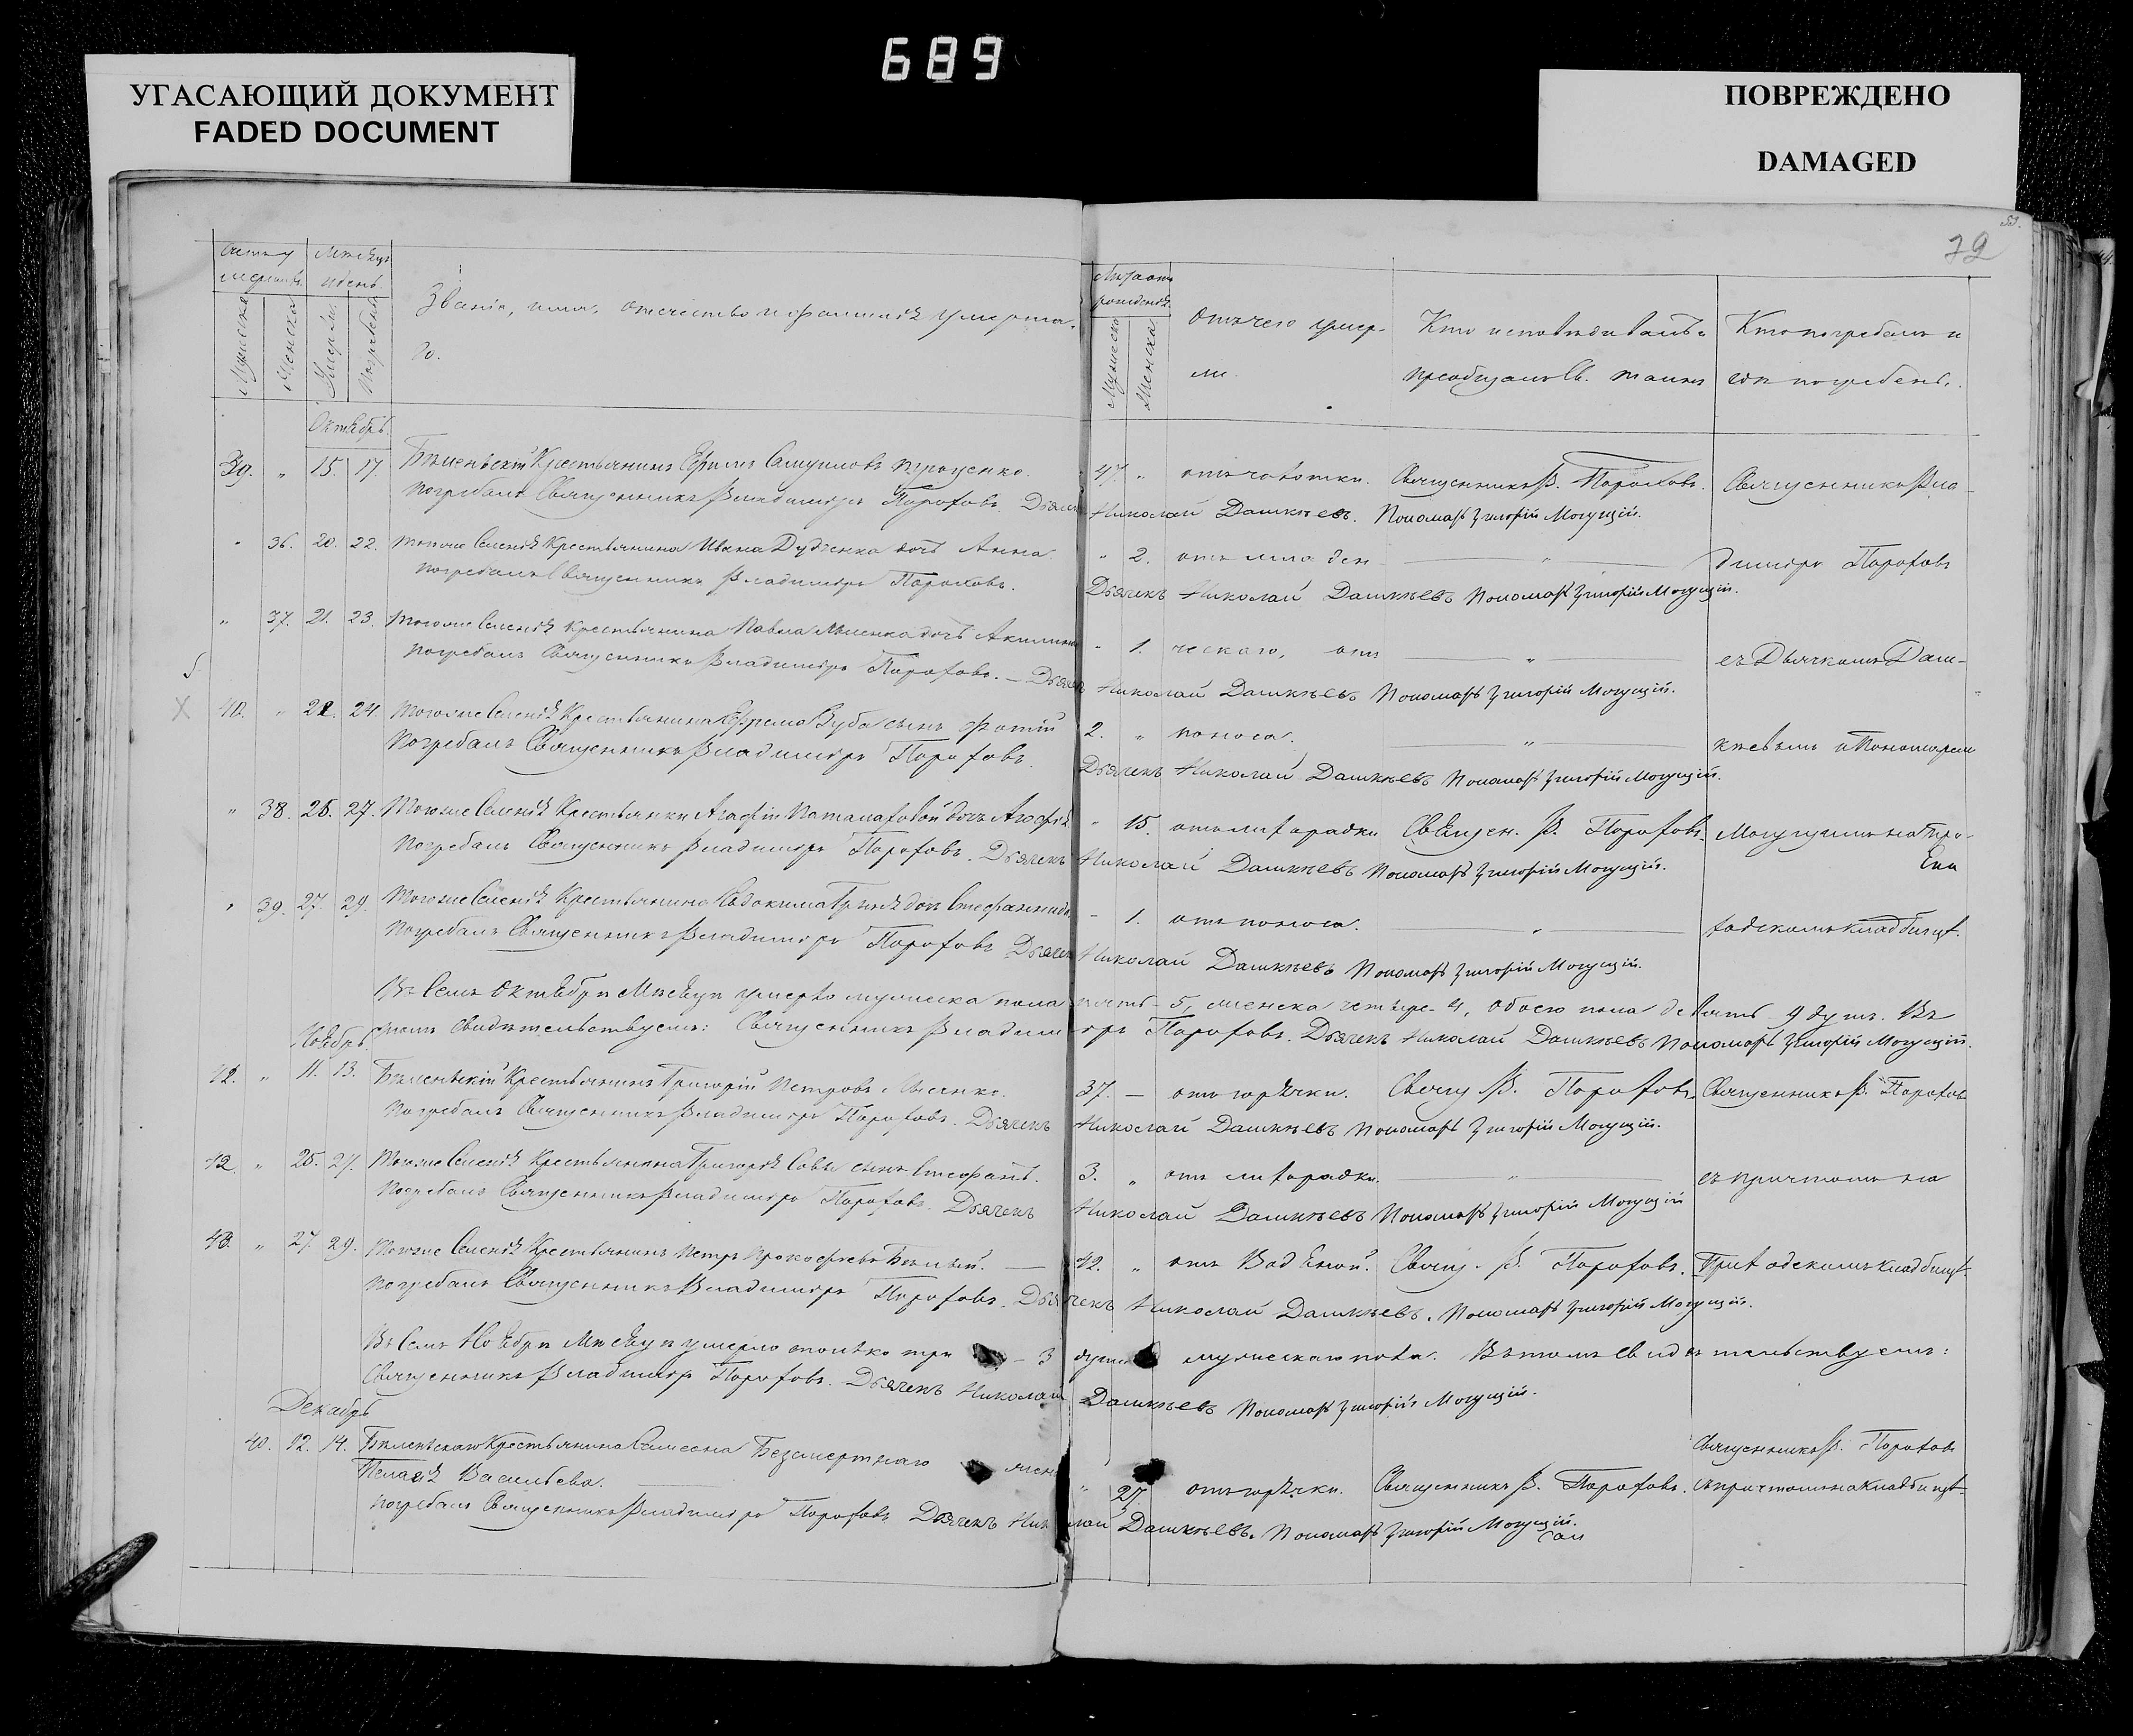 689
УГАСАЮЩИЙ ДОКУМЕНТ
FADED DOCUMENT
ПОВРЕЖДЕНО
DAMAGED
53.
79
Счетъ умершихъ. Мѣсяцъ и день. Званіе, имя, отечество и фамилія умерша-
го.
Мужеска Женска Умерли Погребены
Лѣта отъ рожденія. Отъ чего умер-
ли. Кто исповѣдивалъ и
преобщалъ Св. таинъ Кто погребалъ и
гдѣ погребены.
Мужеска Женска
Октябрь.
39. " 15. 17. Крестьянинъ 47. " отъ чахотки. Священникъ В. Пороховъ. Священникъ Вла-
Погребалъ Священникъ Владиміръ Пороховъ. Дьячекъ Николай Дашкѣевъ. Пономарь Григорій Могущій.
" 36. 20. 22. Того же Селенія Крестьянина Ивана Дудченка дочь Анна. " 2. отъ младен " диміръ Пороховъ
Погребалъ Священникъ Владиміръ Пороховъ. Дьячекъ Николай Дашкѣевъ Пономарь Григорій Могущій.
" 37. 21. 23. Того же Селенія Крестьянина Павла дочь Акилина " 1. ческаго, отъ " съ Дьячкомъ Даш-
Погребалъ Священникъ Владиміръ Пороховъ. — Дьячекъ Николай Дашкѣевъ Пономарь Григорій Могущій.
X 40. " 22. 24. Того же Селенія Крестьянина Ефрема Зуба сынъ Фотій 2. " поноса. " кѣевымъ и Пономаремъ
Погребалъ Священникъ Владиміръ Пороховъ. Дьячекъ Николай Дашкѣевъ Пономарь Григорій Могущій.
" 38. 25. 27. Того же Селенія Крестьянки Агафіи дочь Агафія " 15. отъ лихорадки Священ. В. Пороховъ. Могущимъ на При-
Погребалъ Священникъ Владиміръ Пороховъ. Дьячекъ Николай Дашкѣевъ Пономарь Григорій Могущій.
" 39. 27. 29. Того же Селенія Крестьянина Евдокима дочь Стефанида " 1. отъ поноса. " ходскомъ кладбищѣ.
Погребалъ Священникъ Владиміръ Пороховъ Дьячекъ Николай Дашкѣевъ Пономарь Григорій Могущій.
Въ Семъ Октябрѣ Мѣсяцѣ умерло мужеска пола пять - 5, женска четыре - 4, обоего пола девять - 9 душъ. Въ
чемъ свидѣтельствуемъ: Священникъ Владиміръ Пороховъ. Дьячекъ Николай Дашкѣевъ Пономарь Григорій Могущій.
Ноябрь.
42. " 11. 13. Крестьянинъ Григорій Петровъ 37. — отъ горячки. Свящ. В. Пороховъ. Священникъ В. Пороховъ
Погребалъ Священникъ Владиміръ Пороховъ. Дьячекъ Николай Дашкѣевъ Пономарь Григорій Могущій.
42. " 25. 27. Того же Селенія Крестьянина Григорія сынъ Стефанъ. 3. " отъ лихорадки. " съ причтомъ на
Погребалъ Священникъ Владиміръ Пороховъ. Дьячекъ Николай Дашкѣевъ Пономарь Григорій Могущій
43. " 27. 29. Того же Селенія Крестьянинъ Петръ Прокофьевъ Бѣлый. — 42. " отъ Водяной. Свящ. В. Пороховъ. Приходскомъ кладбищѣ.
Погребалъ Священникъ Владиміръ Пороховъ. Дьячекъ Николай Дашкѣевъ. Пономарь Григорій Могущій.
Въ Семъ Ноябрѣ Мѣсяцѣ умерло только три - 3 души мужескаго пола. Въ томъ свидѣтельствуемъ:
Священникъ Владиміръ Пороховъ. Дьячекъ Николай Дашкѣевъ Пономарь Григорій Могущій.
Декабрь
40. 12. 14. Крестьянина Безсмертнаго жена Священникъ В. Пороховъ
Пелагія Васильева. " 27. отъ горячки. Священникъ В. Пороховъ. съ причтомъ на кладбищѣ.
Погребалъ Священникъ Владиміръ Пороховъ Дьячекъ Николай Дашкѣевъ. Пономарь Григорій Могущій.